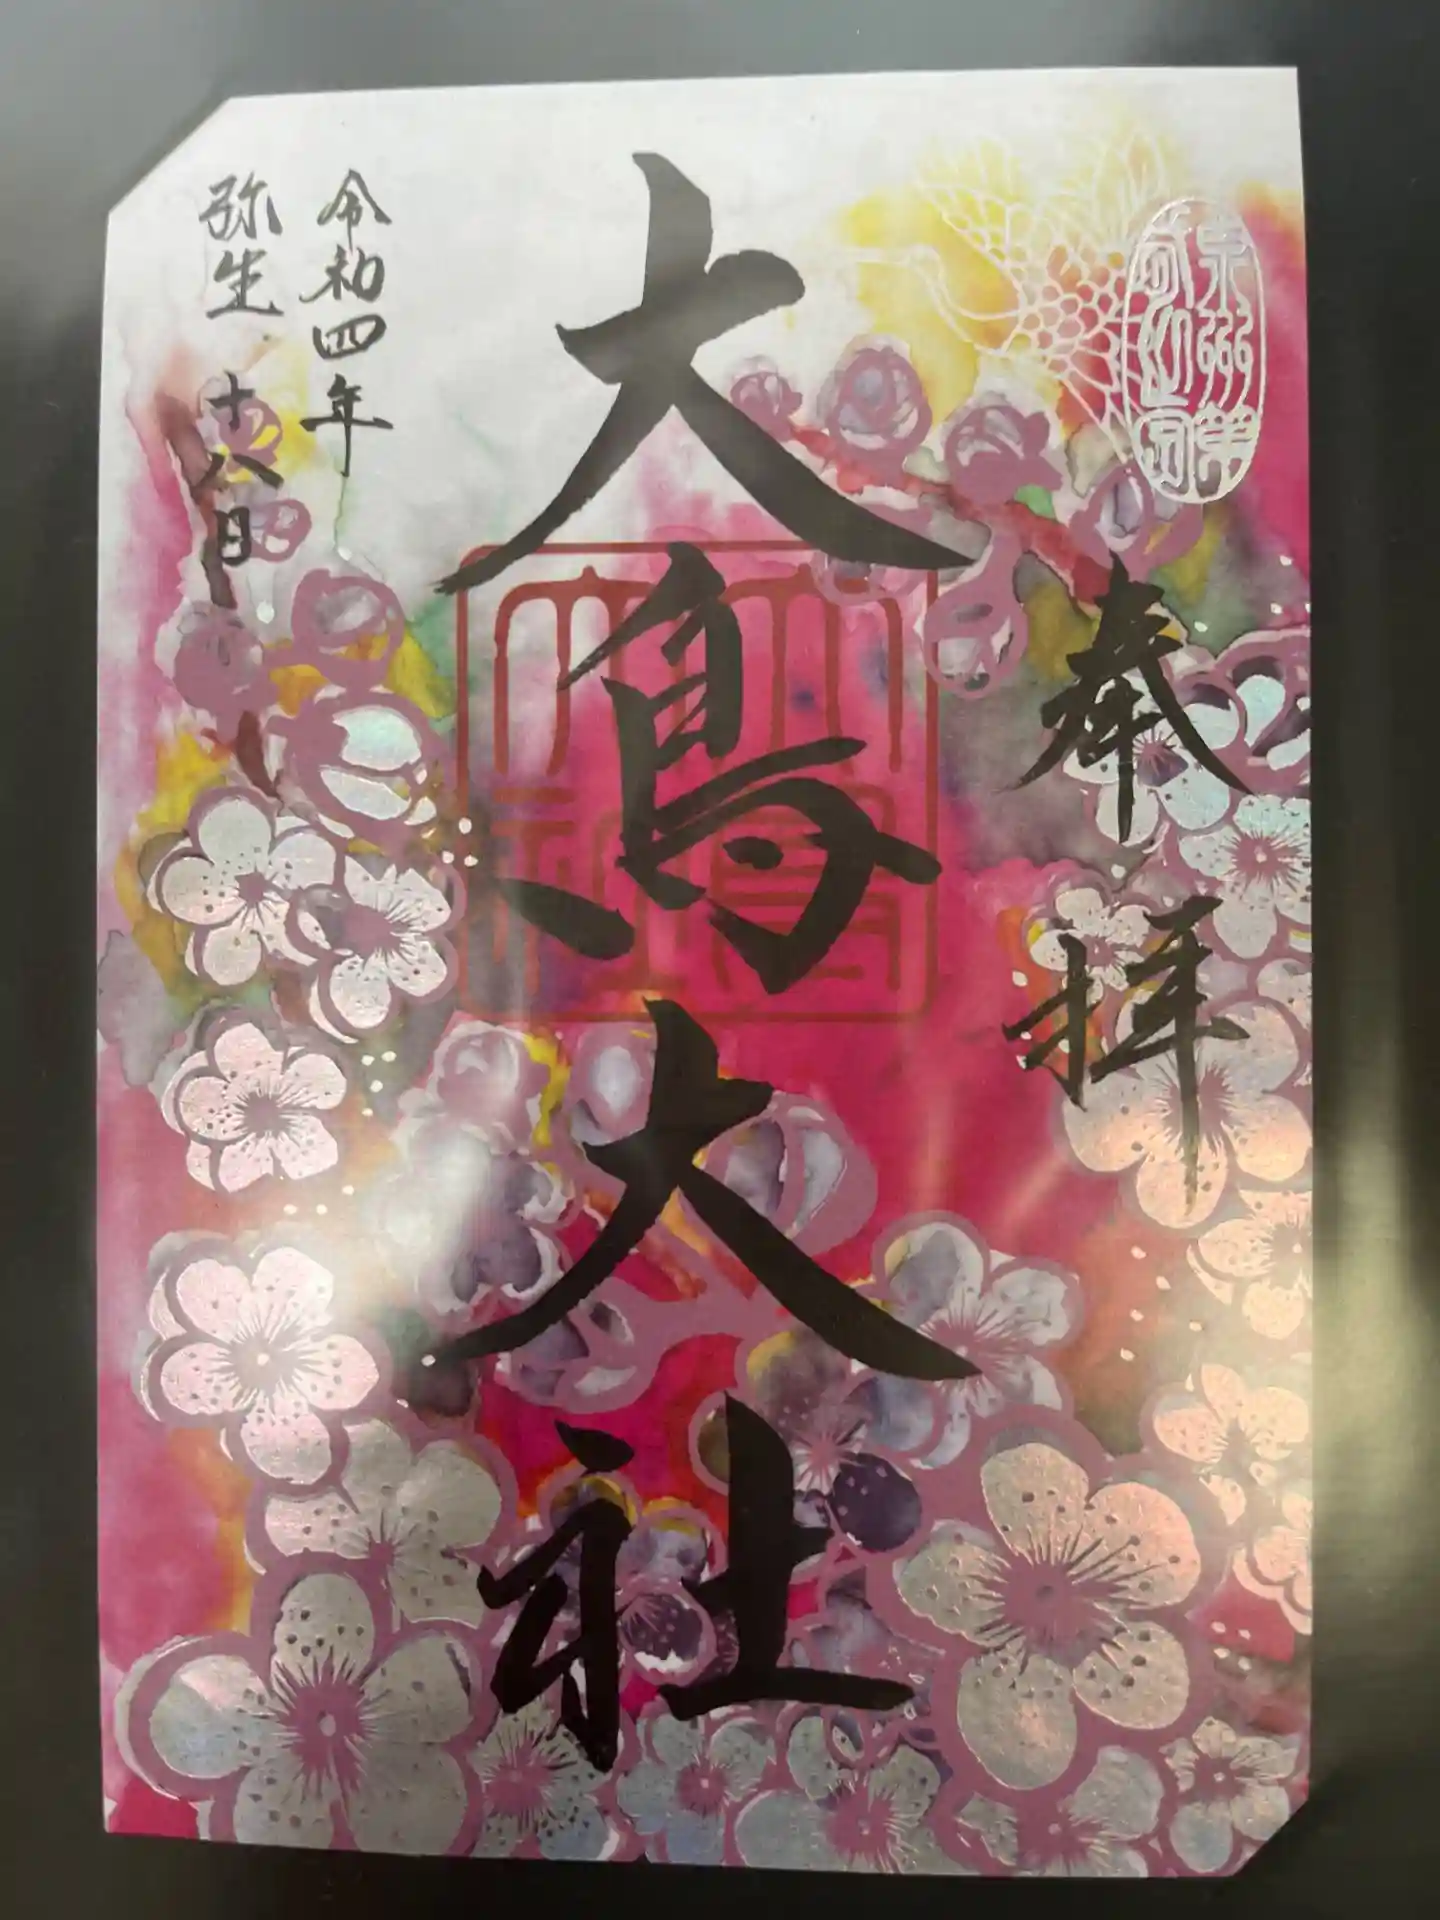 奉拝
大鳥大社
令和四年
弥生 十八日